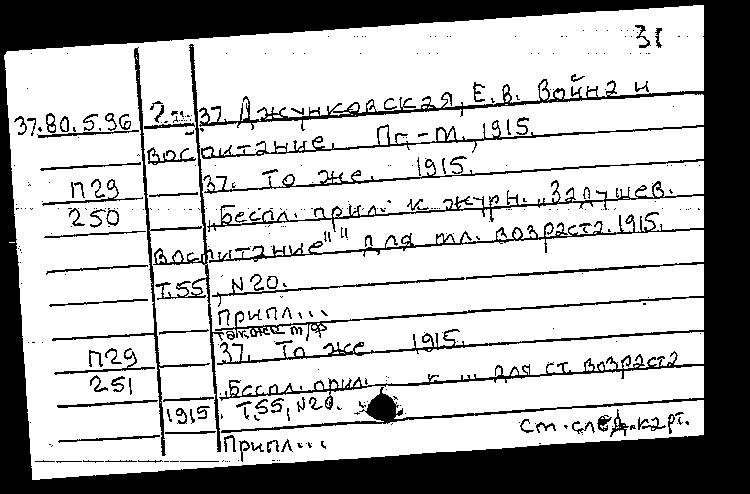 31
37.80.5.96 37. Джунковская, Е.В. Война и
воспитание. Пг.-М., 1915.
П29 37. То же. 1915.
250 „Беспл. прил. к журн. „Задушев.
воспитание"" для мл. возраста. 1915.
Т.55, N20.
Припл...
также м/ф
П29 37. То же. 1915.
251 „Беспл. прил. к ... для ст. возраста
1915. Т.55, N20.
Припл... См. след. карт.